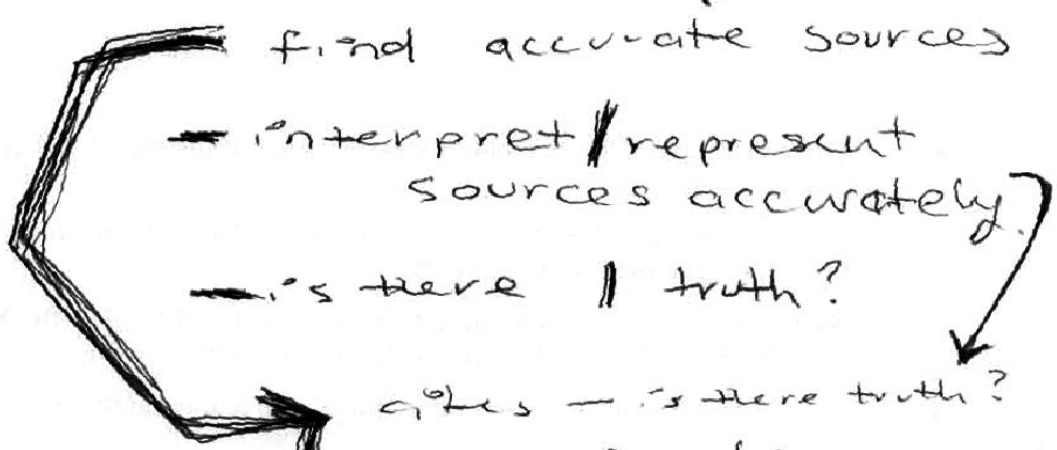 — find accurate sources
— interpret/represent
sources accurately
— is there 1 truth?
— is there truth?